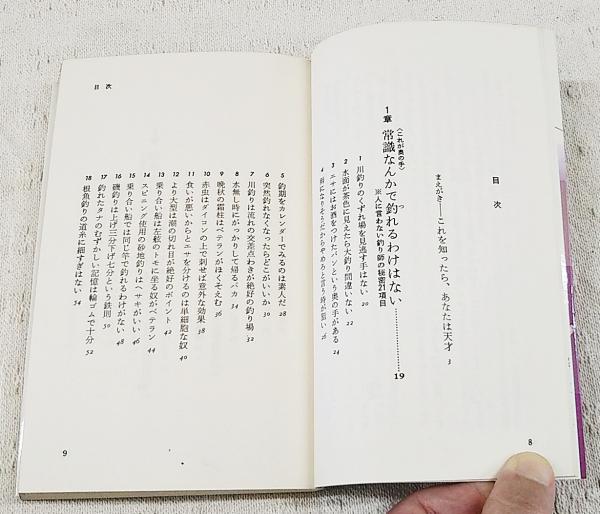 目次
まえがき——これを知ったら、あなたは天才 3
1章 〈これが奥の手〉
常識なんかで釣れるわけはない………………19
※人に言わない釣り師の秘密21項目
1 川釣りのくずれ場を見逃す手はない 20
2 水面が茶色に見えたら大釣り間違いない 22
3 エサにはお酒をつけたパンという奥の手がある 24
4 雨になりそうだからやめようと言う時が狙い 26
8
目次
5 釣期をカレンダーでみるのは素人だ 28
6 突然釣れなくなったらどこがいいか 30
7 川釣りは流れの交茶点わきが絶好の釣り場 32
8 水無し時にがっかりして帰るバカ 34
9 晩秋の霜柱はベテランがほくそえむ 36
10 赤虫はダイコンの上で刺せば意外な効果 38
11 食いが悪いからとエサを分けるのは単細胞な奴 40
12 より大型は潮の切れ目が絶好のポイント 42
13 乗り合い船は左舷のトモに坐る奴がベテラン 44
14 スピニング使用の砂地釣りはヘサキがいい 46
15 乗り合い船では同じ竿で釣れるわけがない 48
16 磯釣りは上げ三分下げ七分という鉄則 50
17 釣れたタナのむずかしい記憶は輪ゴムで十分 52
18 根魚釣りの道糸に細すぎはない 54
9